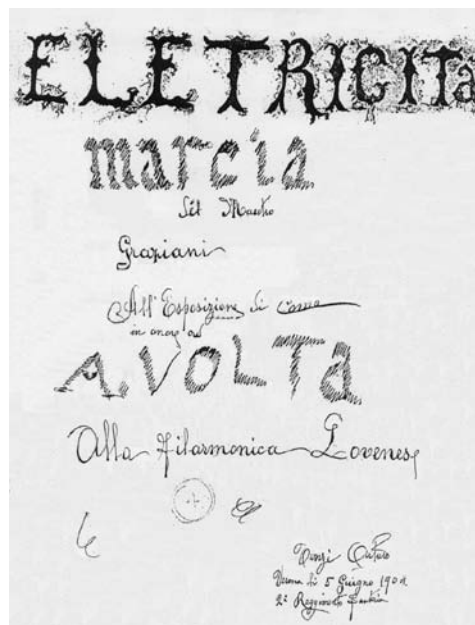 ELETRICITa
marcia
del Maestro
Graziani
All'Esposizione di Como
in onore ad
A. VOLTa
Alla Filarmonica Lovenese
li 5 Giugno
2° Reggimento